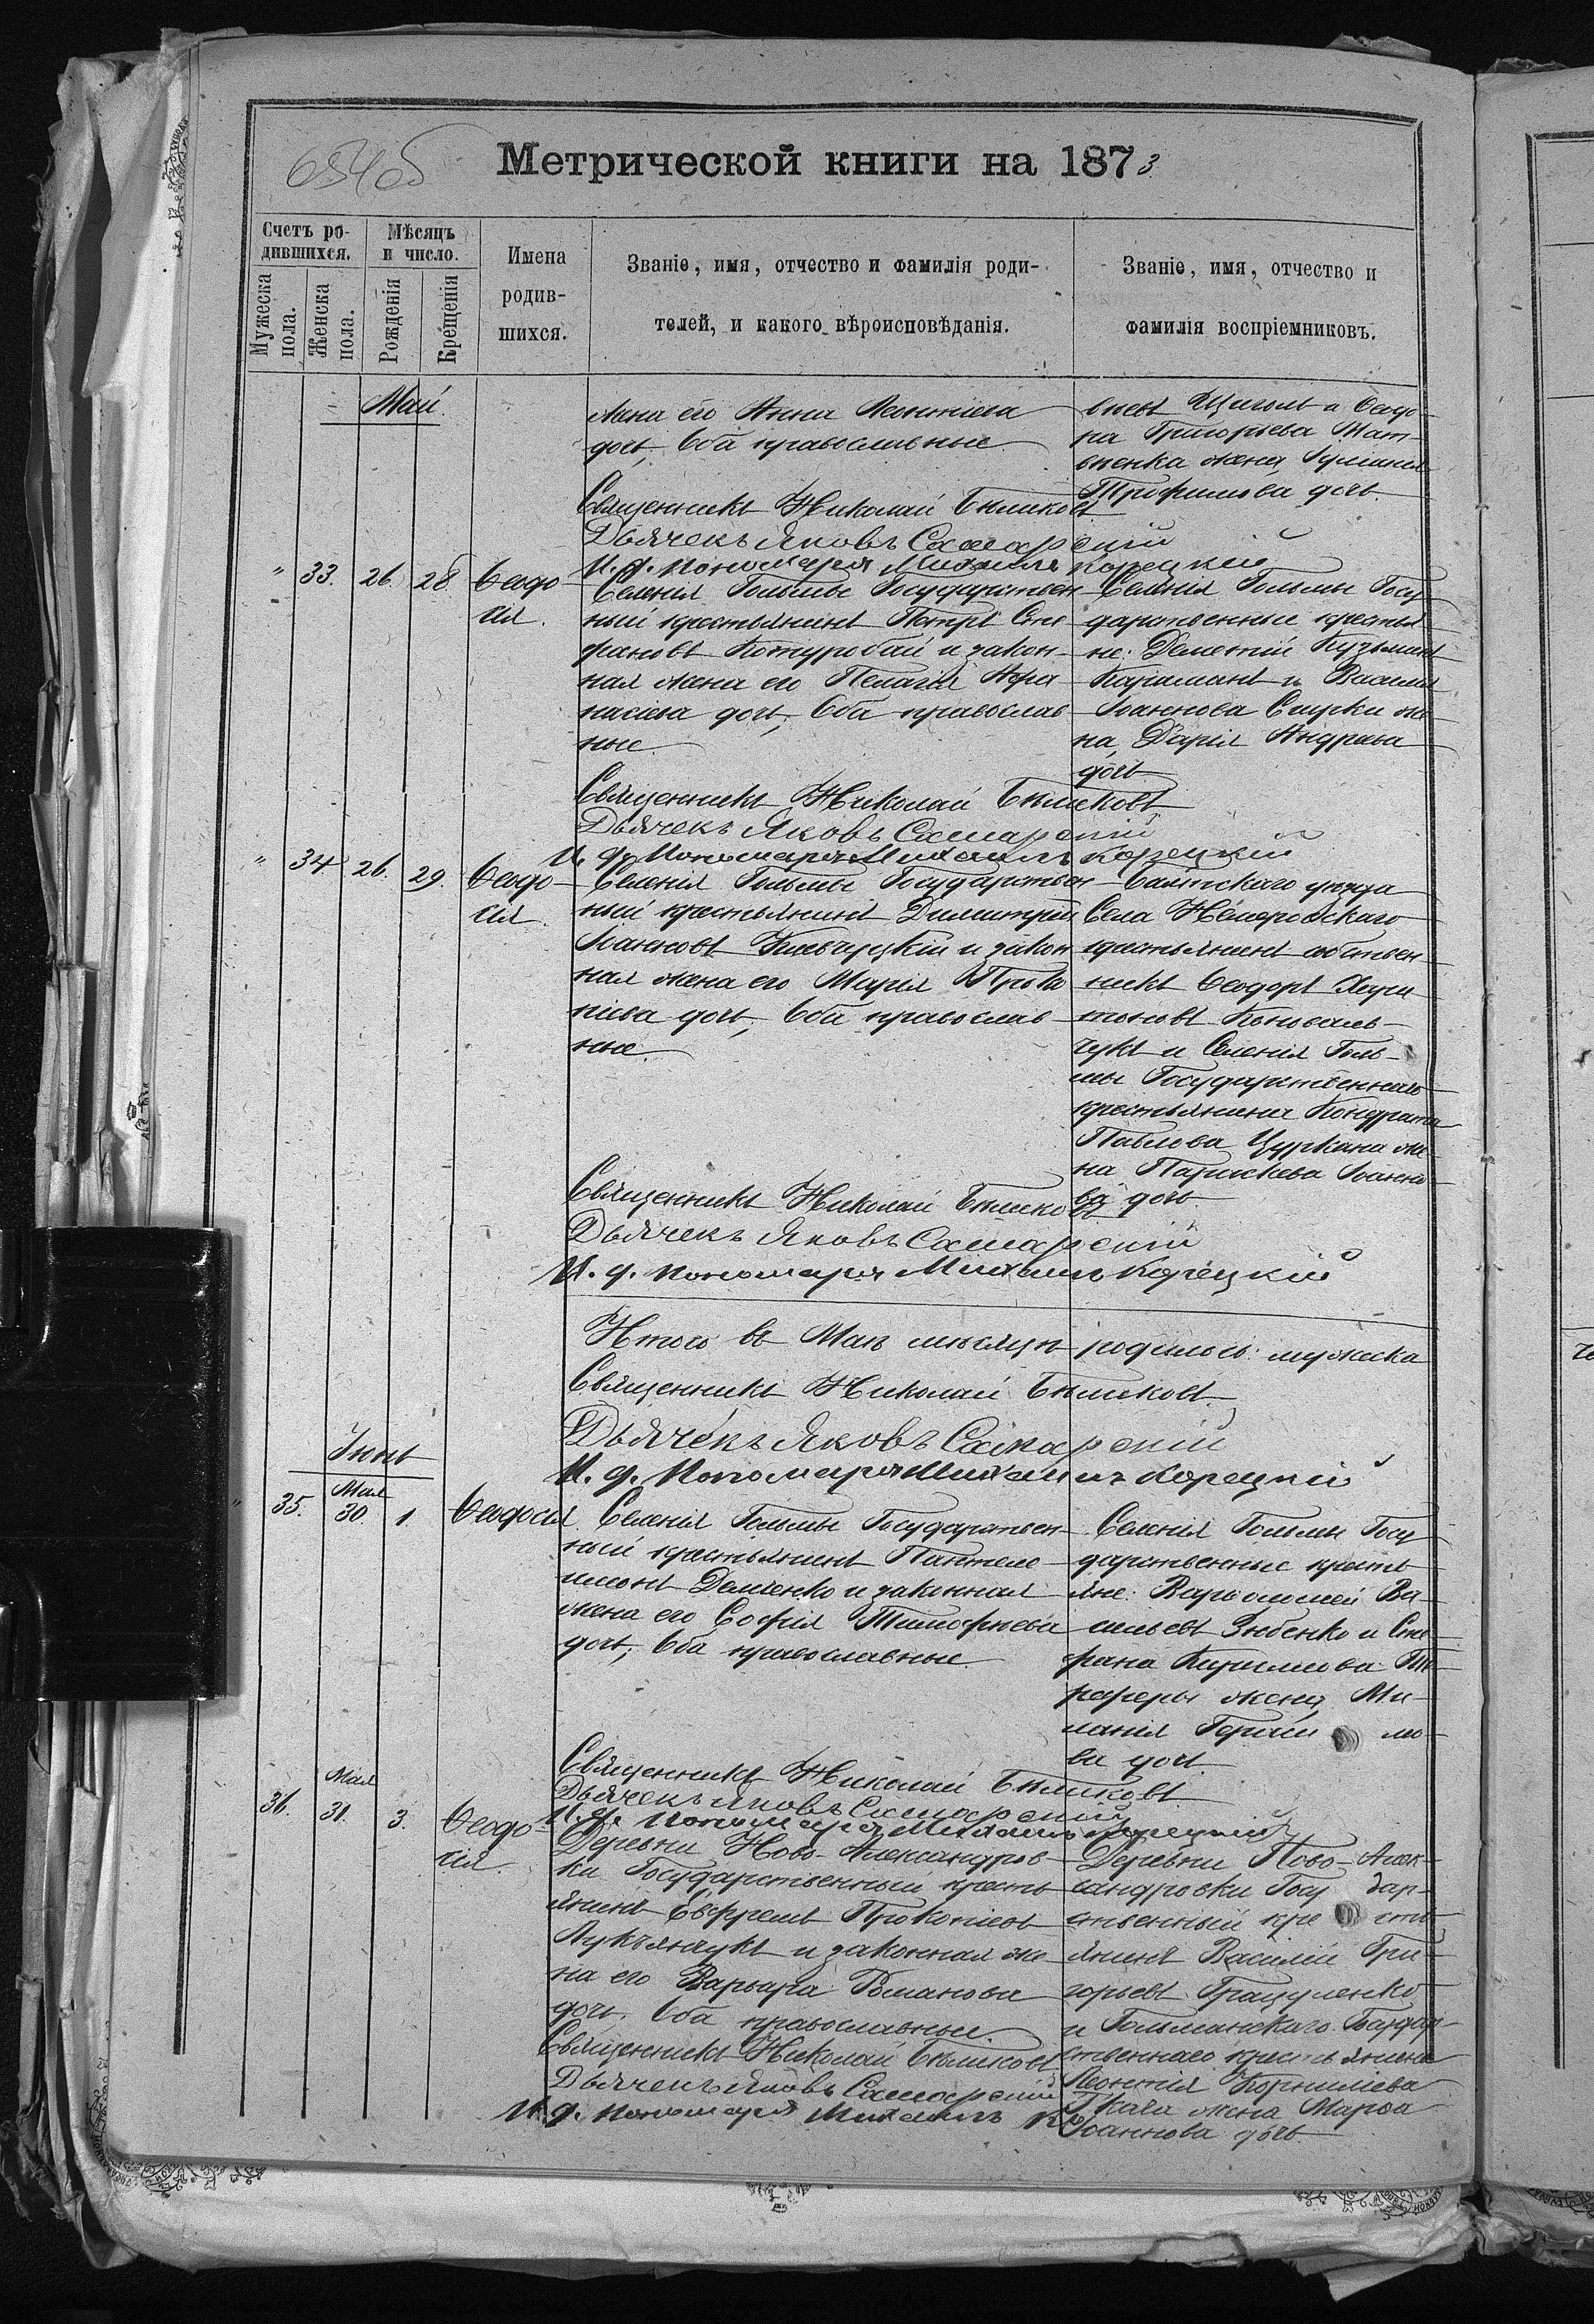 65 об
Метрической книги на 1873
Счетъ ро-
дившихся.
Мужеска
пола.
Женска
пола.
Мѣсяцъ
и число.
Рожденія
Крещенія
Имена
родив-
шихся.
Званіе, имя, отчество и фамилія роди-
телей, и какого вѣроисповѣданія.
Званіе, имя, отчество и
фамилія воспріемниковъ.
Май.
жена его Анна Леонтіева
дочь, Оба православные.
вьевъ и Ѳеодо-
ра Григорьева Мат-
вѣенка жена,
Трофимова дочь.
Священникъ Николай Бѣликовъ
Дьячекъ Яковъ Самарскій
И. д. Пономаря Михаилъ Корецкій
" 33. 26. 28. Ѳеодо-
сія.
Селенія Гольмы Государствен-
ный крестьянинъ Петръ Сте-
фановъ Котуробай и закон-
ная жена его Пелагія Афа-
насіева дочь, Оба православ-
ные.
Селенія Гольмы Госу-
дарственные крестья-
не: Дементій Кузьминъ
Караманъ и Василія
Іоаннова же-
на, Дарія Андреева
дочь
Священникъ Николай Бѣликовъ
Дьячекъ Яковъ Самарскій
И. д. Пономаря Михаилъ Корецкій
" 34. 26. 29. Ѳеодо-
сія.
Селенія Гольмы Государствен-
ный крестьянинъ Димитрій
Іоанновъ и закон-
ная жена его Марія Проко-
піева дочь, Оба православ-
ные.
Балтскаго уѣзда
Села
крестьянинъ собствен-
никъ Ѳеодоръ Хари-
тоновъ Коноваль-
чукъ и Селенія Голь-
мы Государственнаго
крестьянина Кондрата
Павлова Цуркана же-
на Параскева Іоанно-
ва дочь.
Священникъ Николай Бѣликовъ
Дьячекъ Яковъ Самарскій
И. д. Пономаря Михаилъ Корецкій
Итого въ Маѣ мѣсяцѣ родилось: мужеска
Священникъ Николай Бѣликовъ.
Дьячекъ Яковъ Самарскій
И. д. Пономаря Михаилъ Корецкій
Іюнь
Мая
" 35. 30. 1. Ѳеодосія.
Селенія Гольмы Государствен-
ный крестьянинъ Пантеле-
имонъ Демченко и законная
жена его Софія Тимофѣева
дочь, Оба православные.
Селенія Гольмы Госу-
дарственные кресть-
яне: Варѳоломей Ва-
сильевъ Зюбенко и Сте-
фана Кириллова
жена, Ме-
ланія Герасимо-
ва дочь.
Священникъ Николай Бѣликовъ
Дьячекъ Яковъ Самарскій
И. д. Пономаря Михаилъ Корецкій
Мая
36. 31. 3. Ѳеодо-
сія.
Деревни Ново-Александров-
ки Государственный кресть-
янинъ Ефремъ Прокопіевъ
Лукьянчукъ и законная же-
на его Варвара Романова
дочь. Оба православные
Деревни Ново-Алек-
сандровки Государ-
ственный кресть-
янинъ Василій Гри-
горьевъ Грацуленко
и Гольманскаго Государ-
ственнаго крестьянина
Леонтія Корниліева
Ткача жена Марѳа
Іоаннова дочь.
Священникъ Николай Бѣликовъ
Дьячекъ Яковъ Самарскій
И. д. Пономаря Михаилъ Ко